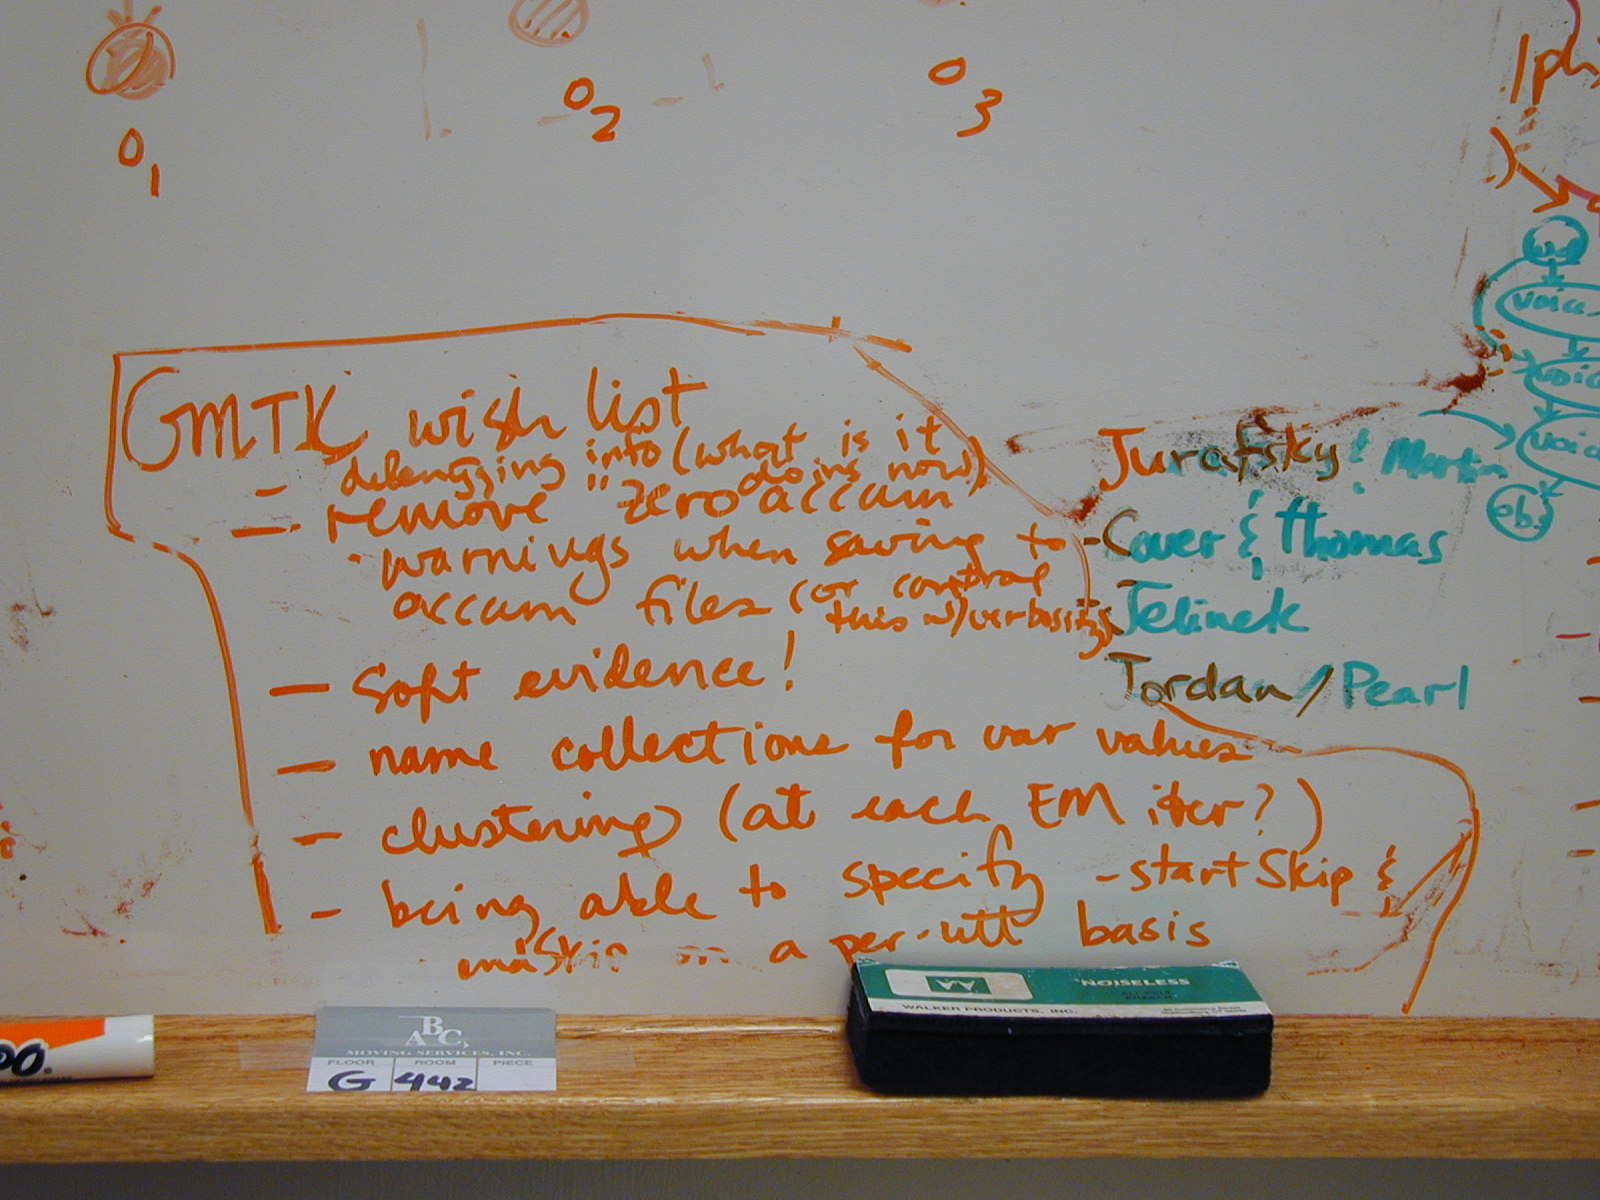 o1
o2
o3
/ph
GMTK wish list
- debugging info (what is it
doing now)
- remove "zero accum
warnings when saving to
accum files (or control
this w/verbosity)
- Soft evidence!
- name collections for var values
- clustering (at each EM iter?)
- being able to specify -startSkip &
endSkip on a per-utt basis
Jurafsky & Martin
-Cover & Thomas
Jelinek
Jordan/Pearl
wd
voic
voic
voic
obs
AA
NOISELESS
WALKER PRODUCTS, INC.
ABC
MOVING SERVICES, INC.
FLOOR ROOM PIECE
G 442
OO.